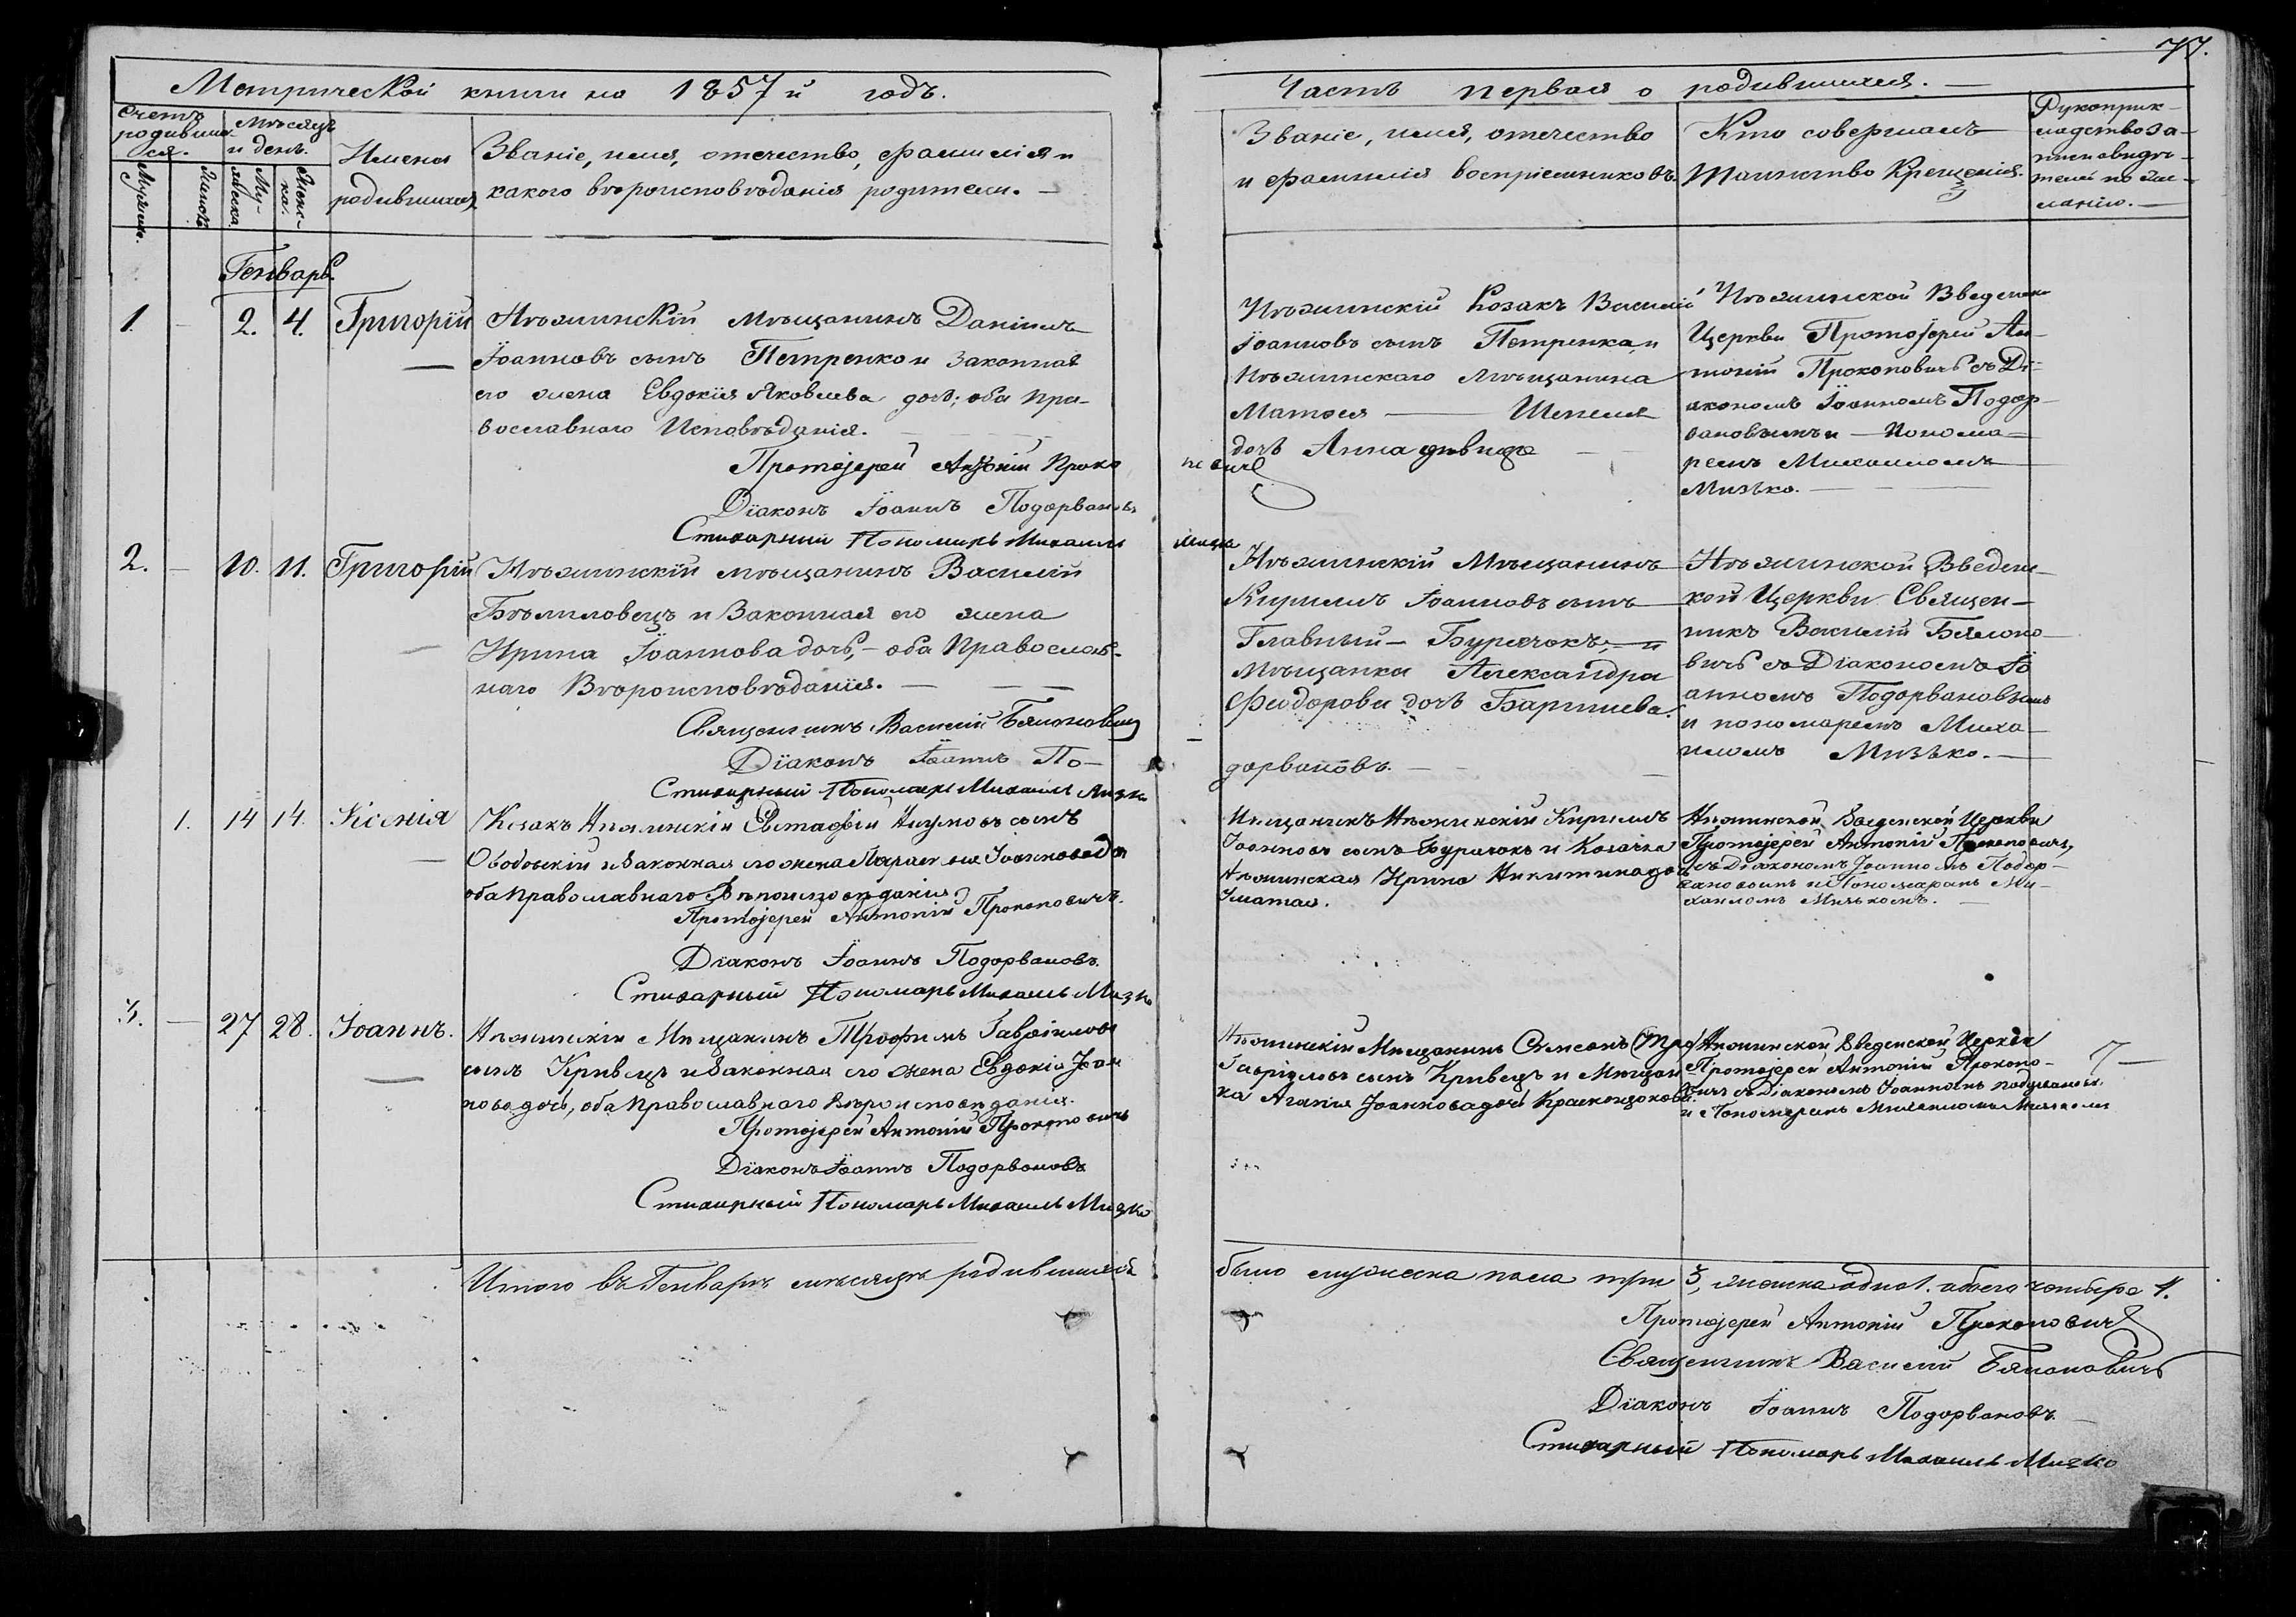 77.
Метрической книги на 1857й годъ.
Счетъ
родивших-
ся.
Мужеска.
Женска.
Мѣсяцъ
и день.
Имена
родившихся
Званіе, имя, отечество, фамилія и
какого вѣроисповѣданія родители.
Генварь
1. 2. 4. Григорій
Нѣжинскій мѣщанинъ Даніилъ
Іоанновъ сынъ Петренко и законная
его жена Евдокія Яковлева дочь; оба пра-
вославнаго Исповѣданія.
Протоіерей Антоній Проко
Діаконъ Іоаннъ Подорвановъ
Стихарный Пономарь Михаилъ
2. 10. 11. Григорій
Нѣжинскій мѣщанинъ Василій
и Законная его жена
Ирина Іоаннова дочь, оба Православ-
наго Вѣроисповѣданія.
Священникъ Василій Бялоновичъ
Діаконъ Іоаннъ По-
Стихарный Пономарь Михаилъ Мизко
1. 14 14. Ксенія
Козакъ Нѣжинскій Евстафій Наумовъ сынъ
и законная его жена Іоаннова до
оба Православнаго Вѣроисповѣданія
Протоіерей Антоній Прокоповичъ.
Діаконъ Іоаннъ Подорвановъ.
Стихарный Пономарь Михаилъ Мизко
3. 27 28. Іоаннъ.
Нѣжинскій Мѣщанинъ Трофимъ Гавріиловъ
сынъ Кривецъ и законная его жена Евдокія Іоан
нова дочь, оба Православнаго Вѣроисповѣданія.
Протоіерей Антоній Прокоповичъ
Діаконъ Іоаннъ Подорвановъ
Стихарный Пономарь Михаилъ Мизко
Итого въ Генварѣ мѣсяцѣ родившихся
Часть первая о родившихся.
Званіе, имя, отечество
и фамилія воспріемниковъ.
Кто совершалъ
таинство Крещенія.
Рукоприк-
ладство за-
писи свидѣ-
телей по же-
ланію.
Нѣжинскій Козакъ Василій
Іоанновъ сынъ Петренка, и
Нѣжинскаго Мѣщанина
Матвея Шепеля
дочь Анна дѣвица
повичъ
Нѣжинской Введенс
Церкви Протоіерей Ан-
тоній Прокоповичъ съ Ді-
акономъ Іоанномъ Подор-
вановымъ и Понома-
ремъ Михаиломъ
Мизько.
Мизко
Нѣжинскій Мѣщанинъ
Кириллъ Іоанновъ сынъ
Главный Бурячокъ; и
Мѣщанка Александра
Феодорова дочь
дорвановъ.
Нѣжинской Введен-
кой Церкви Священ-
никъ Василій Бялоно-
вичъ съ Діакономъ Іо
анномъ Подорвановымъ
и пономаремъ Миха-
иломъ Мизько.
Мѣщанинъ Нѣжинскій Кириллъ
Іоанновъ сынъ Бурячокъ и Козачка
Нѣжинская Ирина Никитина дочь
Нѣжинской Введенской Церкви
Протоіерей Антоній Прокоповичъ,
съ Діакономъ Іоанномъ Подор-
вановымъ и Пономаремъ Ми-
хаиломъ Мизькомъ.
Нѣжинскій Мѣщанинъ Симеонъ
Гавріиловъ сынъ Кривецъ и Мѣщан
ка Агапія Іоаннова дочь
Нѣжинской Введенской Церкви
Протоіерей Антоній Прокопо-
вичъ съ Діакономъ Іоанномъ Подорвановы
и Пономаремъ Михаиломъ
было мужеска пола три 3, женска одна 1. обоего четыре 4.
Протоіерей Антоній Прокоповичъ
Священникъ Василій Бялоновичъ
Діаконъ Іоаннъ Подорвановъ
Стихарный Пономарь Михаилъ Мизко